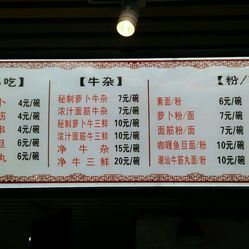 吃】 【牛杂】 【粉/
卜 4元/碗
筋 4元/碗
串 4元/碗
旦 6元/碗
丸 6元/碗
秘制萝卜牛杂 7元/碗
浓汁面筋牛杂 7元/碗
秘制萝卜牛三鲜 10元/碗
浓汁面筋牛三鲜 10元/碗
净牛杂 15元/碗
净牛三鲜 20元/碗
素面/粉 6元/碗
萝卜粉/面 7元/碗
面筋粉/面 7元/碗
咖喱鱼旦面/粉 10元/碗
潮汕牛筋丸面/粉 10元/碗